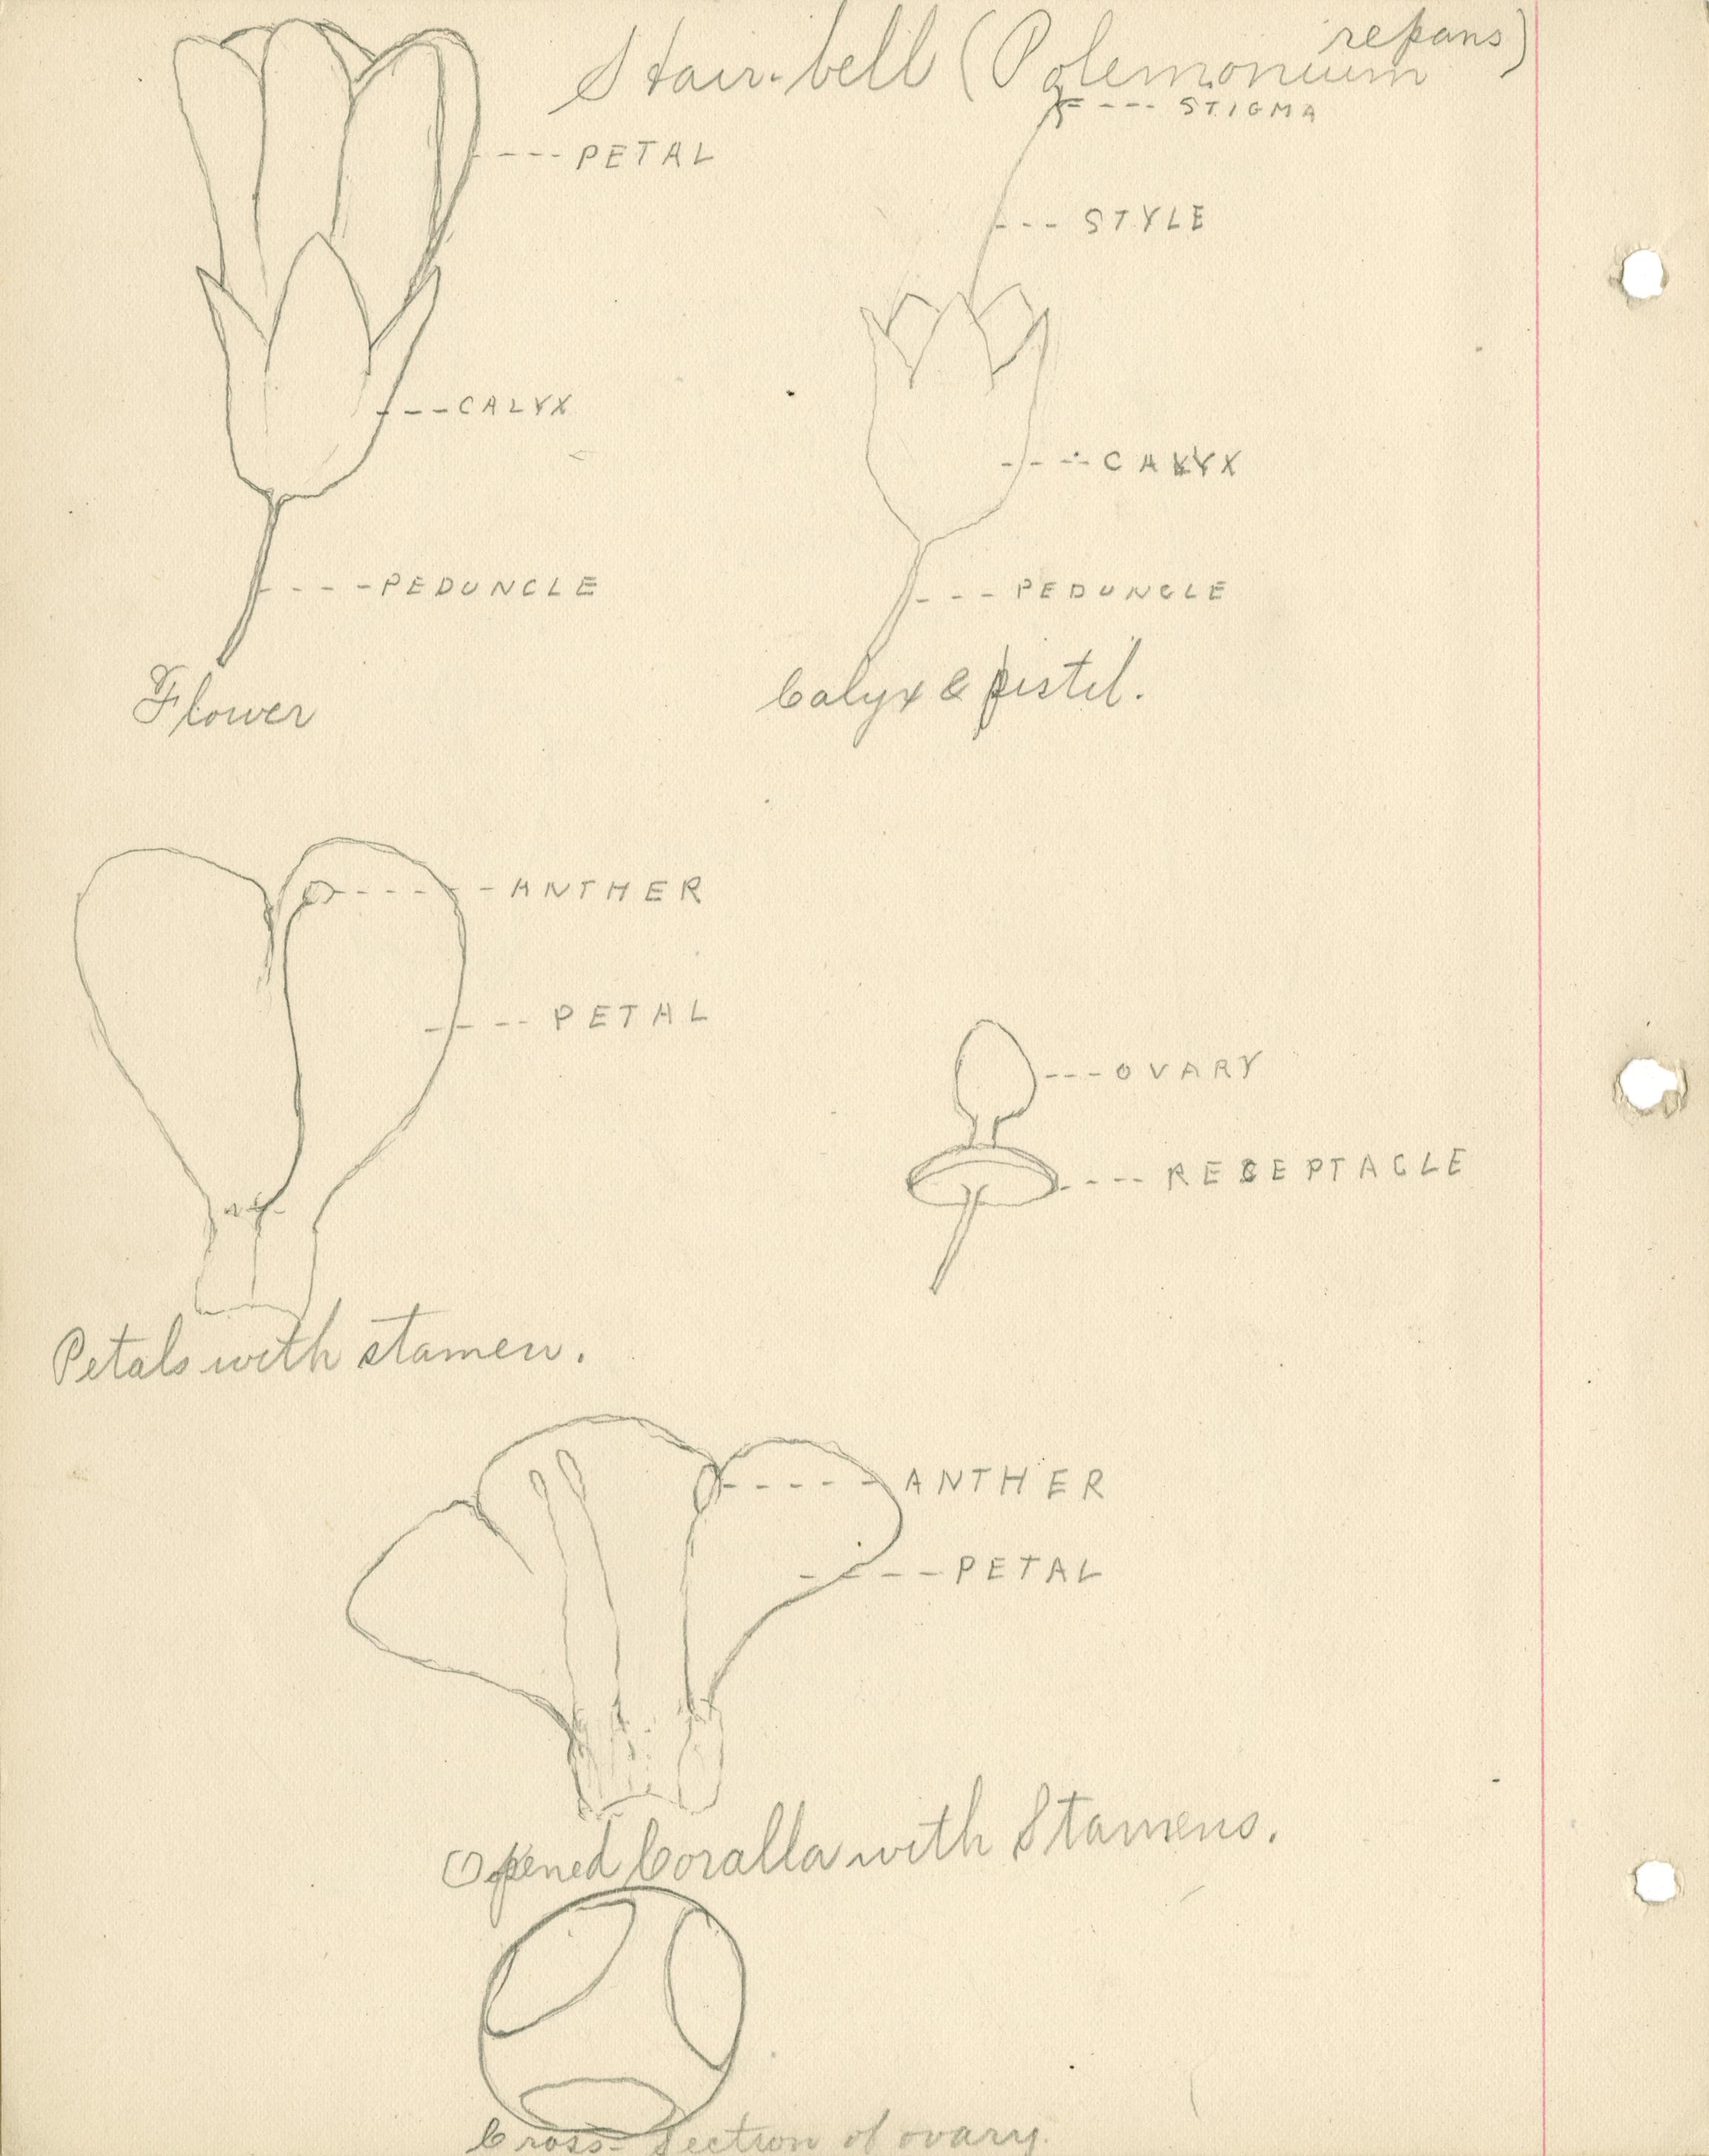 Stair-bell (Polemonium repans)
STIGMA
PETAL
STYLE
CALYX
CALYX
PEDUNCLE
PEDUNCLE
Flower
Calyx & pistil.
ANTHER
PETAL
OVARY
RECEPTACLE
Petals with stamen.
ANTHER
PETAL
Opened Coralla with Stamens.
Cross-Section of ovary.